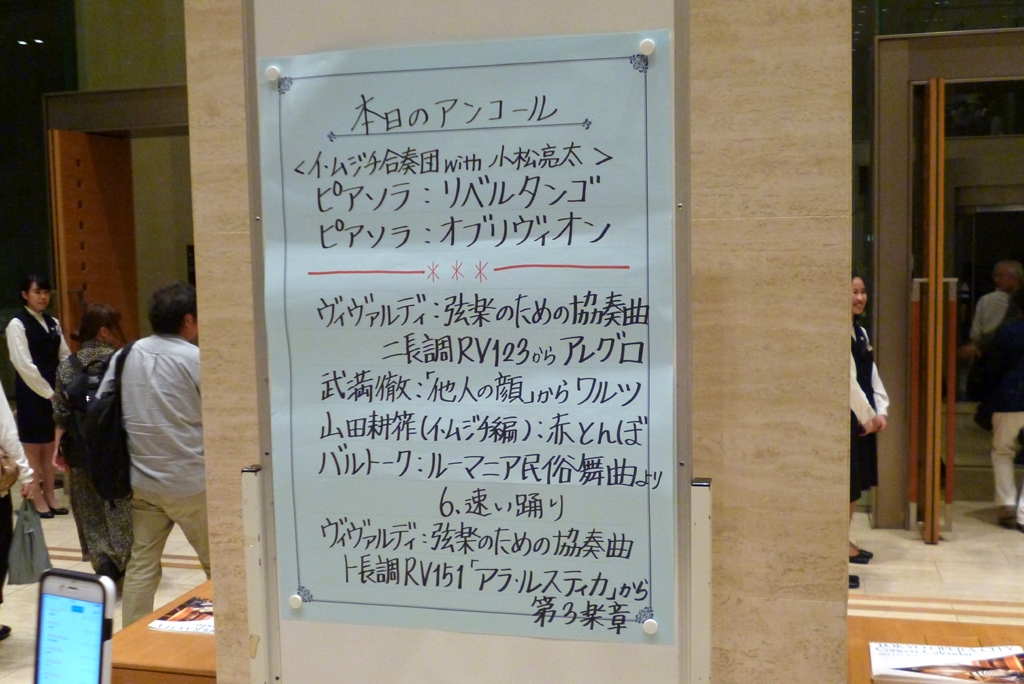 本日のアンコール
<イ・ムジチ合奏団 with 小松亮太>
ピアソラ:リベルタンゴ
ピアソラ:オブリヴィオン
***
ヴィヴァルディ:弦楽のための協奏曲
ニ長調RV123から アレグロ
武満徹:「他人の顔」から ワルツ
山田耕筰(イ・ムジチ編):赤とんぼ
バルトーク:ルーマニア民俗舞曲より
6.速い踊り
ヴィヴァルディ:弦楽のための協奏曲
ト長調RV151「アラ・ルスティカ」から
第3楽章
TOKYO OPERA CITY